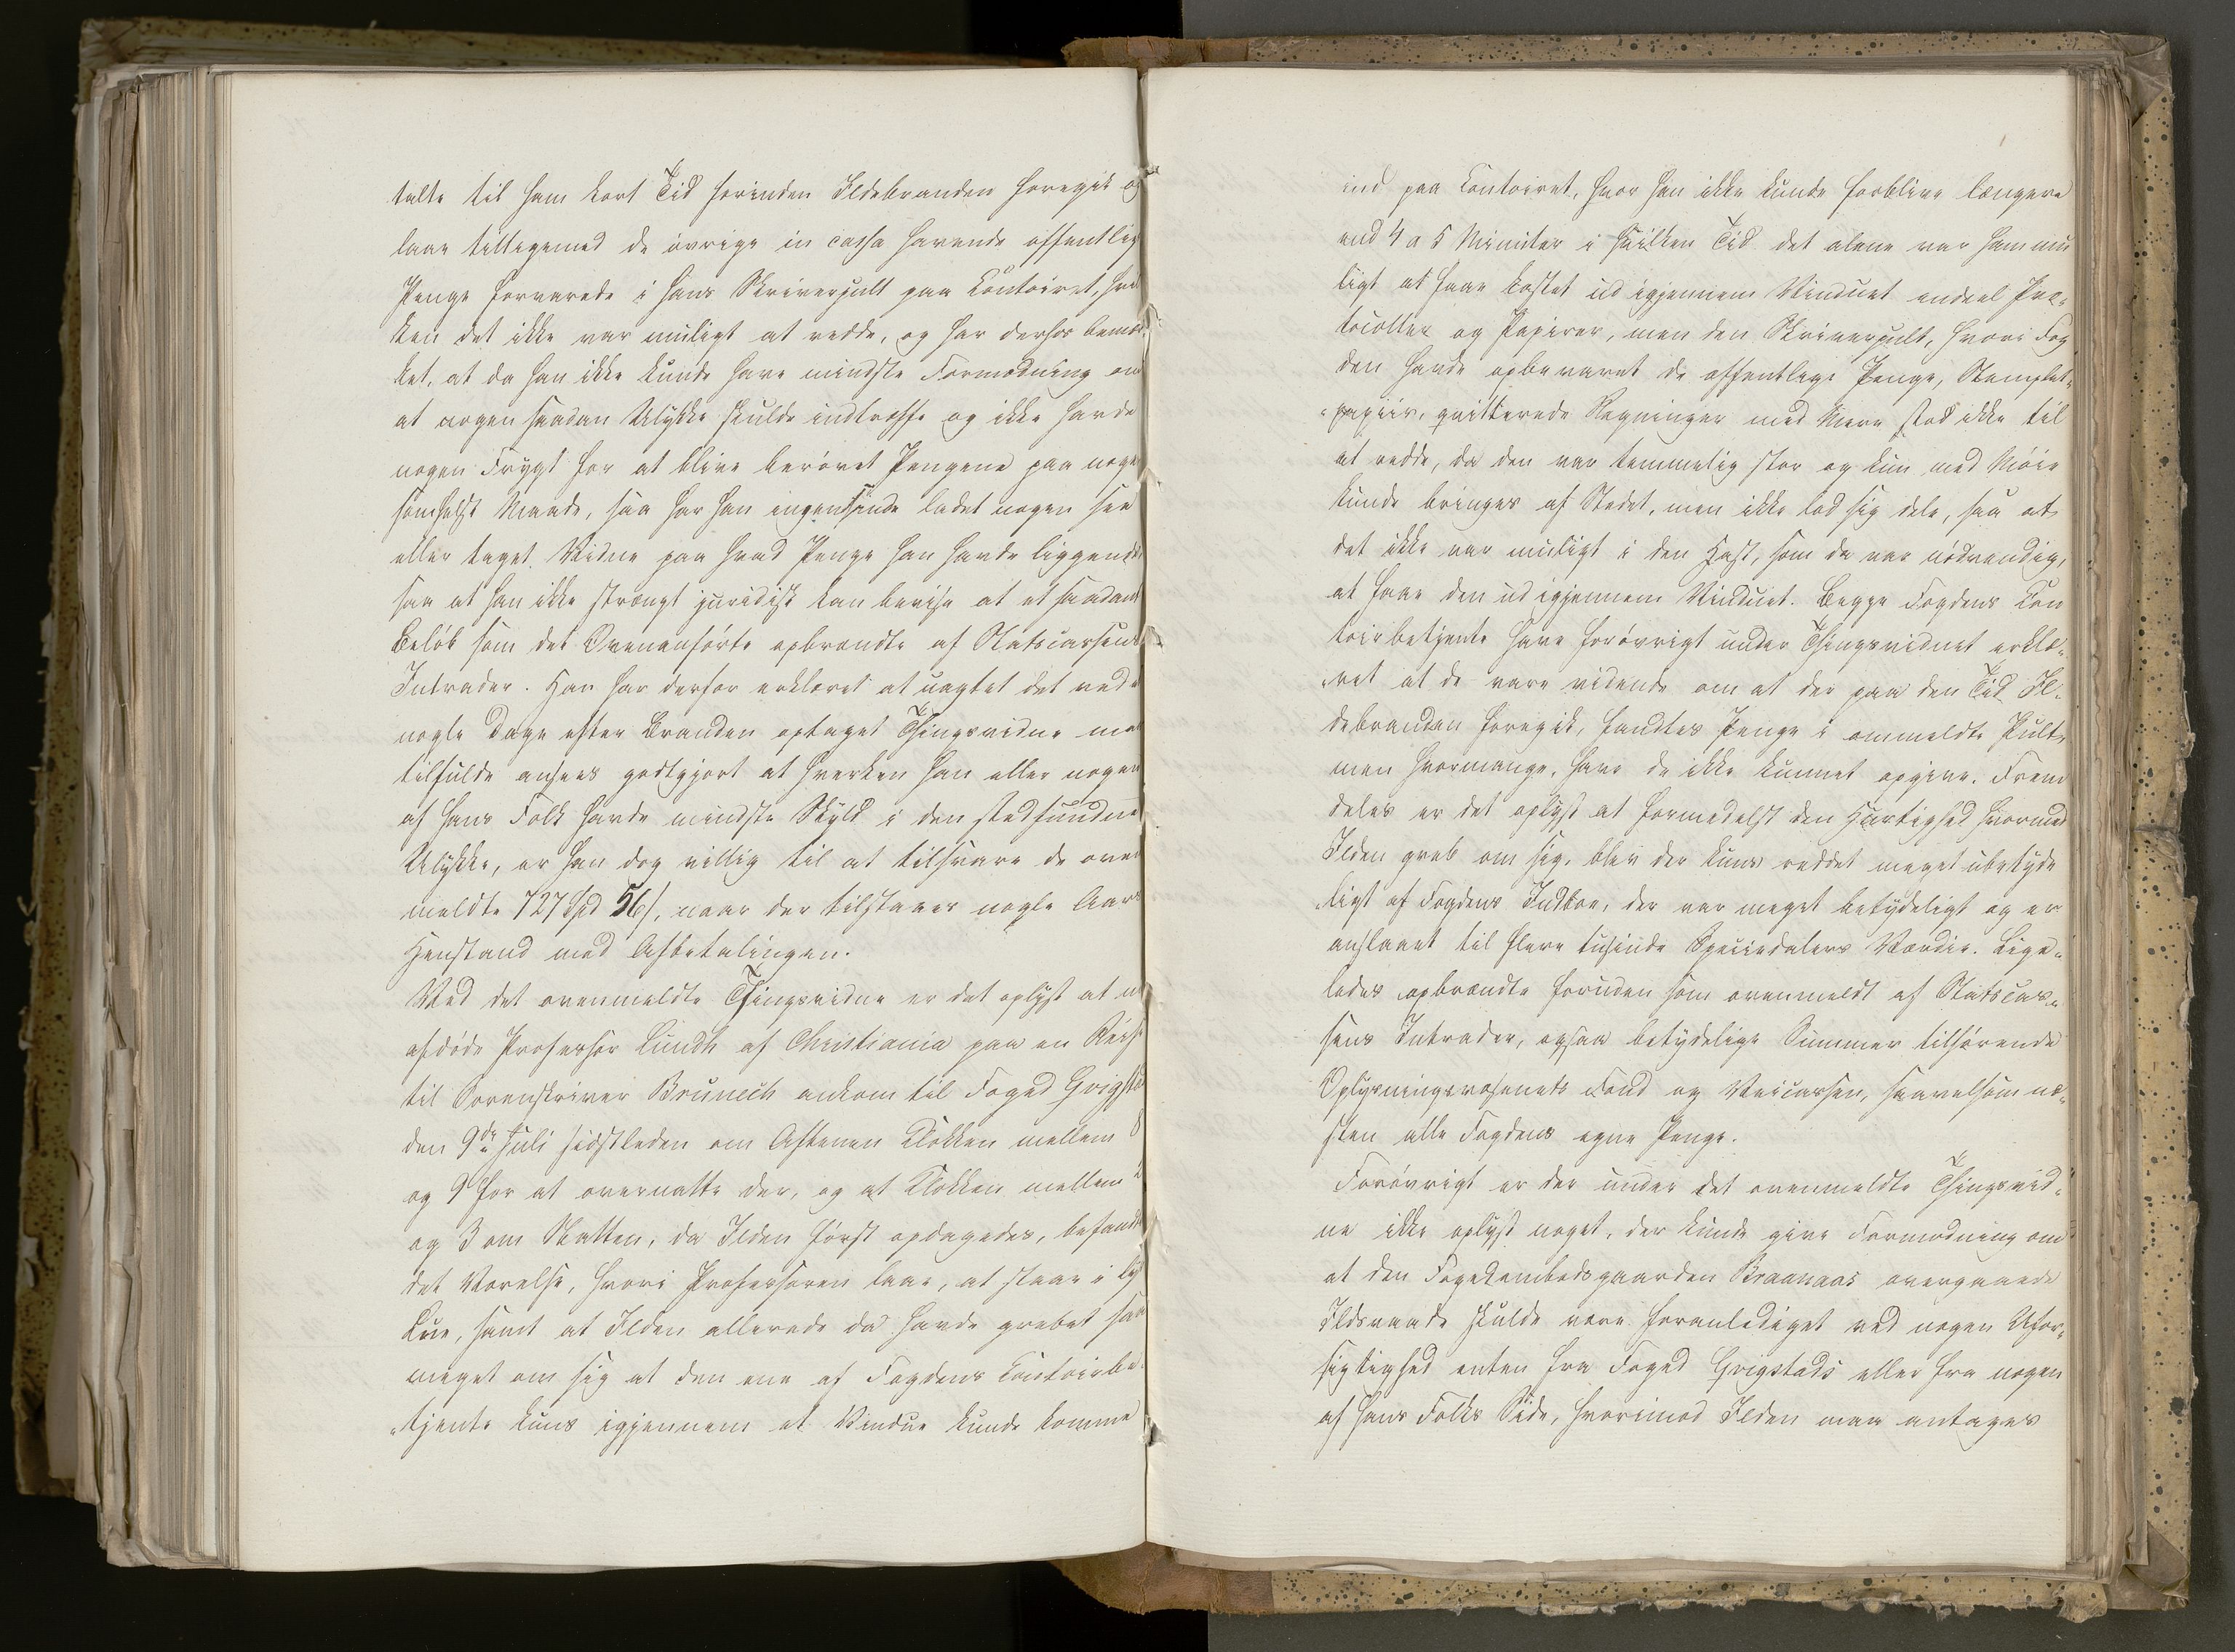 talte til ham kort Tid forinden Ildebranden foregik og
laae tilligemed de övrige in cassa havende offentlig
Penge forvarede i hans Skriverpult paa Contoiret, hvil
ken det ikke var muligt at redde, og har derhos bemær
ket, at da han ikke kunde have mindste Formodning om
at nogen saadan Ulykke skulde indtræffe og ikke havde
nogen Frygt for at blive berövet Pengene paa nogen
somhelst Maade, saa har han ingensinde ladet nogen see
eller taget Vidne paa hvad Penge han havde liggende
saa at han ikke strængt juridisk kan bevise at et saadant
Belöb som det Ovenanförte opbrændte af Statscassens
Intrader. Han har derfor erklæret at uagtet det ved
nogle Dage efter Branden optaget Thingsvidne maa
tilfulde ansees godtgjort at hverken han eller nogen
af hans Folk havde mindste Skyld i den stedfundne
Ulykke, er han dog villig til at tilsvare de oven
meldte 727 Spd 56 s, naar der tilstaaes nogle Aars
Henstand med Afbetalingen.
Ved det ovenmeldte Thingsvidne er det oplyst at nu
afdöde Professor Lundh af Christiania paa en Reise
til Sorenskriver Brunech ankom til Foged Grigsta
den 9de Juli sidstleden om Aftenen Klokken mellem 8
og 9 for at overnatte der, og at Klokken mellem 2
og 3 om Natten, da Ilden först opdagedes, befandt
det Værelse, hvori Professoren laae, at staae i lys
Lue, samt at Ilden allerede da havde grebet saa
meget om sig at den ene af Fogdens Contoirbe
„tjente kuns igjennem et Vindue kunde komme
ind paa Contoiret, hvor han ikke kunde forblive længere
end 4 a 5 Minuter i hvilken Tid det alene var ham mu
ligt at faae kastet ud igjennem Vinduet endeel Pro„
tocoller og Papirer, men den Skriverpult, hvori Fog
den havde opbevaret de offentlige Penge, Stemplet„
„papiir, qvitterede Regninger med Mere stod ikke til
at redde, da den var temmelig stor og kun med Möie
kunde bringes af Stedet, men ikke lod sig dele, saa at
det ikke var muligt i den Hast, som da var nödvendig,
at faae den ud igjennem Vinduet. Begge Fogdens Con
toirbetjente have forövrigt under Thingsvidnet erklæ„
„ret at de vare vidende om at der paa den Tid Il„
debranden foregik, fandtes Penge i ommeldte Pult,
men hvormange, have de ikke kunnet opgive. Frem
deles er det oplyst at formedelst den Hurtighed hvormed
Ilden greb om sig, blev der kuns reddet meget ubetyde
ligt af Fogdens Indboe, der var meget betydeligt og er
anslaaet til flere tusinde Speciedalers Værdie. Lige„
ledes opbrændte foruden som ovenmeldt af Statscas„
sens Intrader, ogsaa betydelige Summer tilhörende
Oplysningsvæsenets Fond og Veicassen, saavelsom næ„
sten alle Fogdens egne Penge.
Forövrigt er der under det ovenmeldte Thingsvid„
ne ikke oplyst noget, der kunde give Formodning om
at den Fogedembedsgaarden Braanaas overgaaede
Ildsvaade skulde være foranlediget ved nogen Ufor„
sigtighed enten fra Foged Grigstads eller fra nogen
af hans Folks Side, hvorimod Ilden maa antages